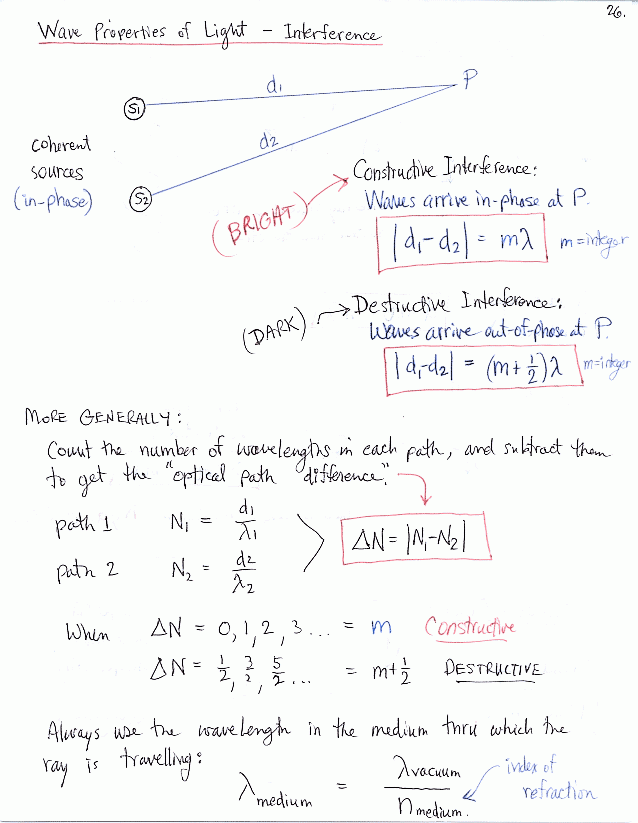 26.
Wave Properties of Light – Interference
d₁
P
S1
d2
coherent
sources
(in-phase)
S2
Constructive Interference:
Waves arrive in-phase at P.
(BRIGHT)
|d₁-d₂| = mλ m=integer
Destructive Interference:
(DARK)
Waves arrive out-of-phase at P.
|d₁-d₂| = (m+½)λ m=integer
MORE GENERALLY:
Count the number of wavelengths in each path, and subtract them
to get the "optical path difference".
path 1 N₁ = d₁/λ₁
ΔN = |N₁-N₂|
path 2 N₂ = d₂/λ₂
When ΔN = 0, 1, 2, 3... = m Constructive
ΔN = 1/2, 3/2, 5/2... = m+½ DESTRUCTIVE
Always use the wavelength in the medium thru which the
ray is travelling:
λmedium = λvacuum/nmedium.
index of
refraction